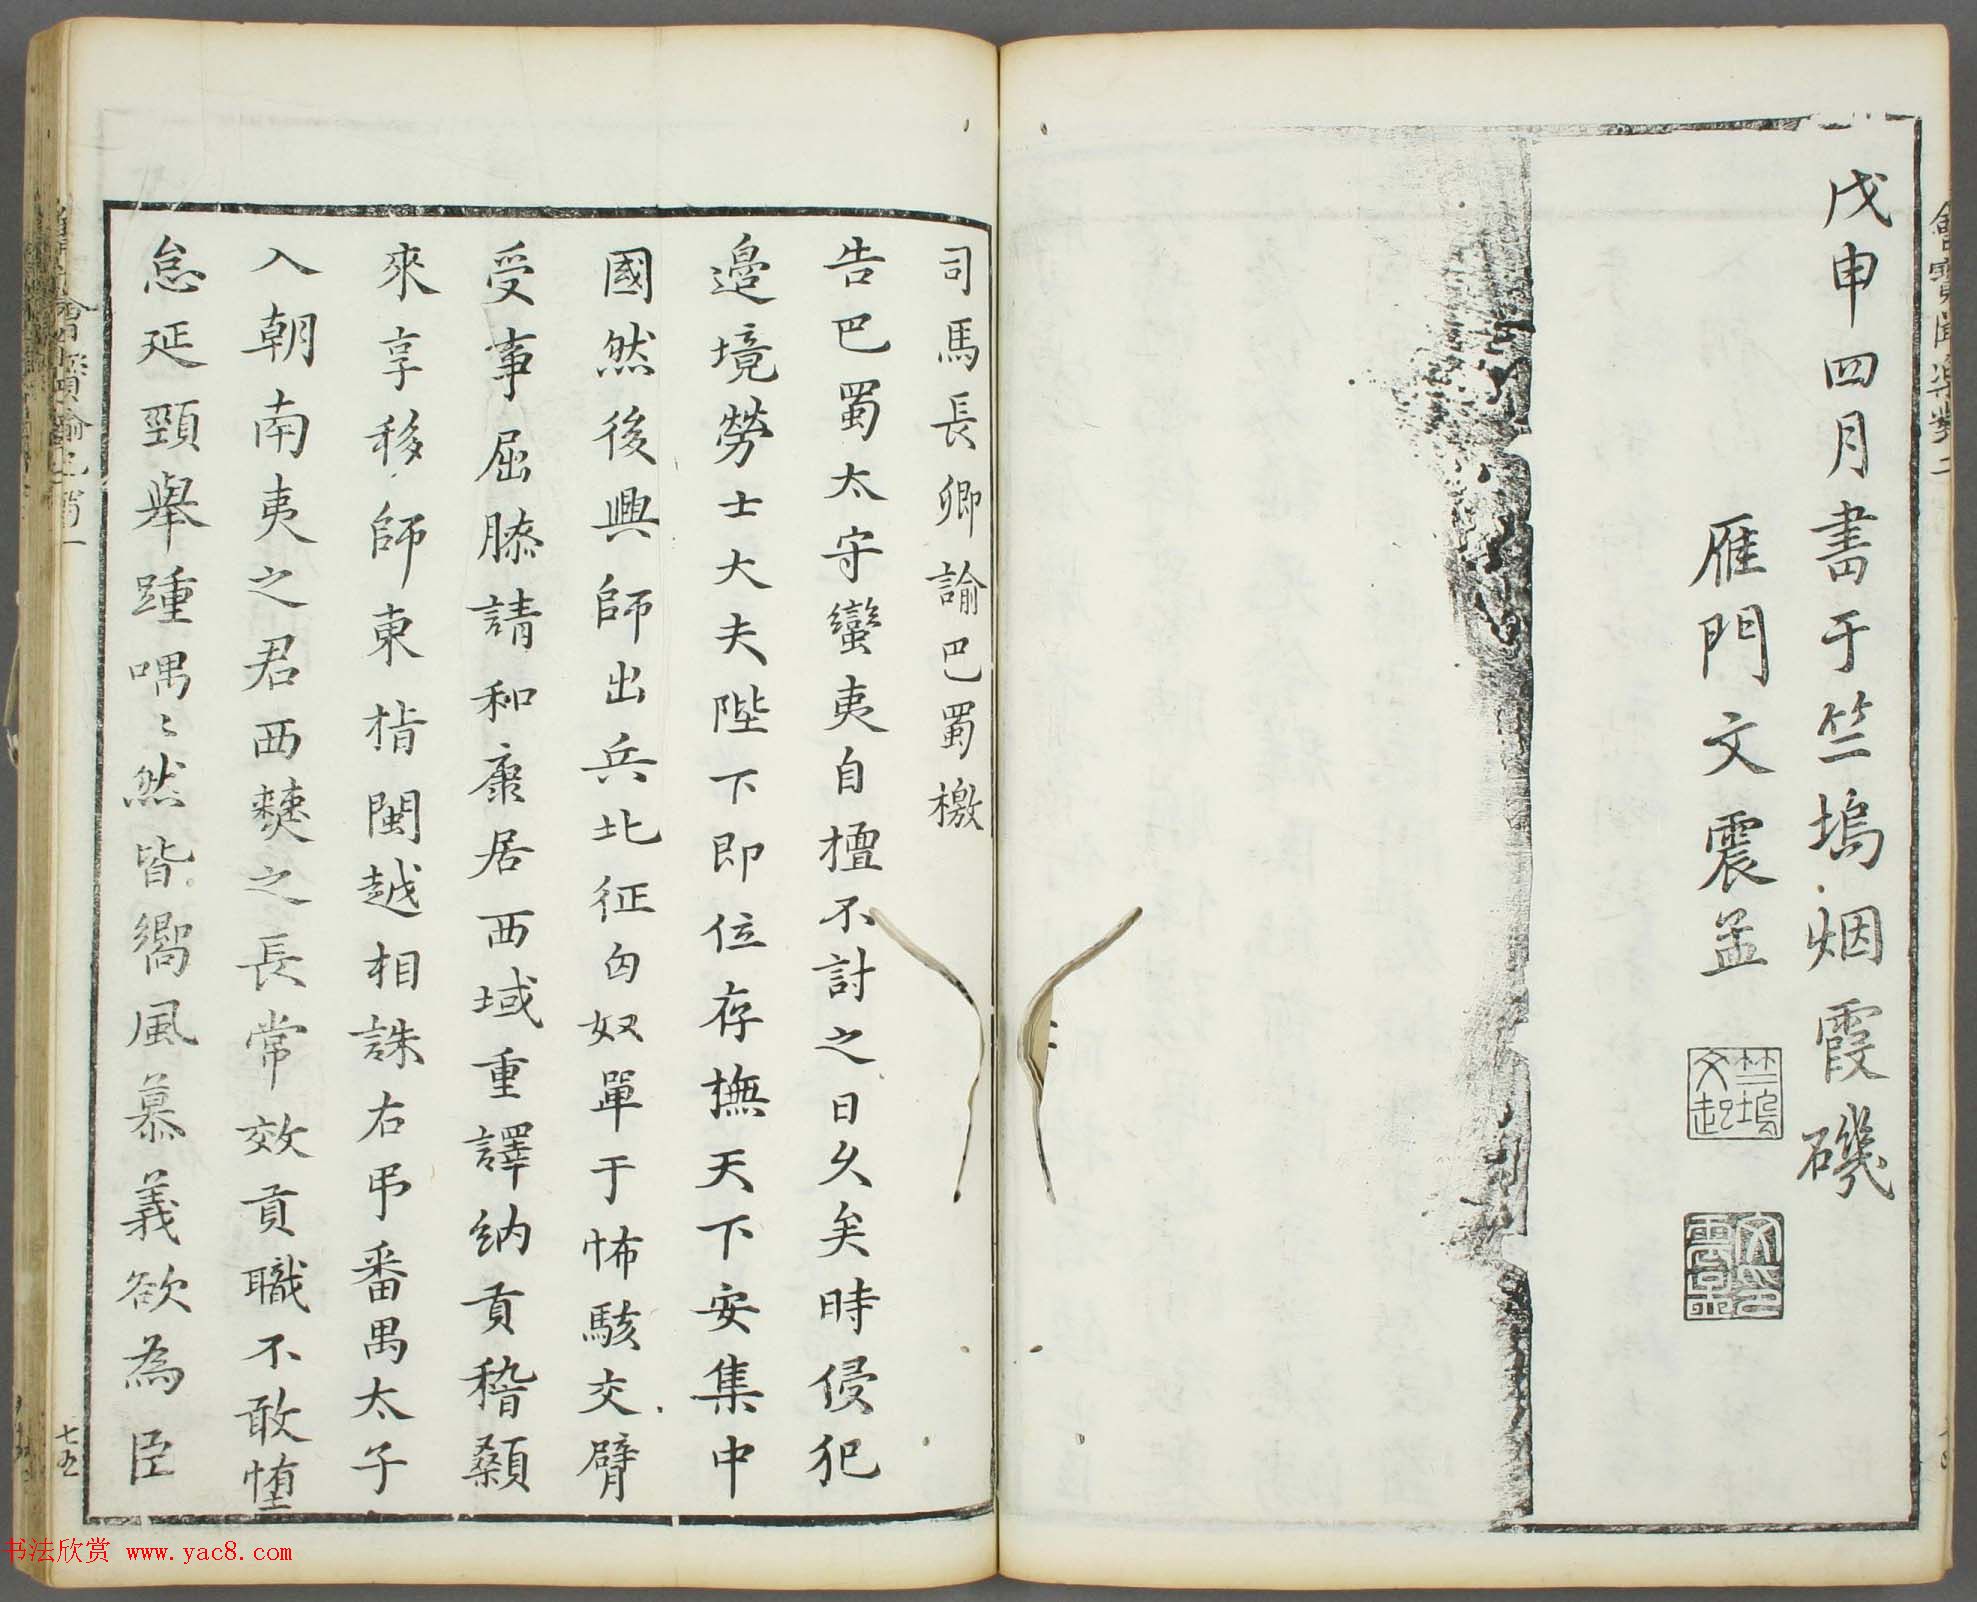 戊申四月書于竺塢烟霞磯
雁門文震孟
竺塢
文起
司馬長卿諭巴蜀檄
告巴蜀太守蠻夷自擅不討之日久矣時侵犯
邊境勞士大夫陛下即位存撫天下安集中
國然後興師出兵北征匈奴單于怖駭交臂
受事屈膝請和康居西域重譯納貢稽顙
來享移師東指閩越相誅右弔番禺太子
入朝南夷之君西僰之長常效貢職不敢惰
怠延頸舉踵喁〻然皆嚮風慕義欲為臣
七五
书法欣赏 www.yac8.com